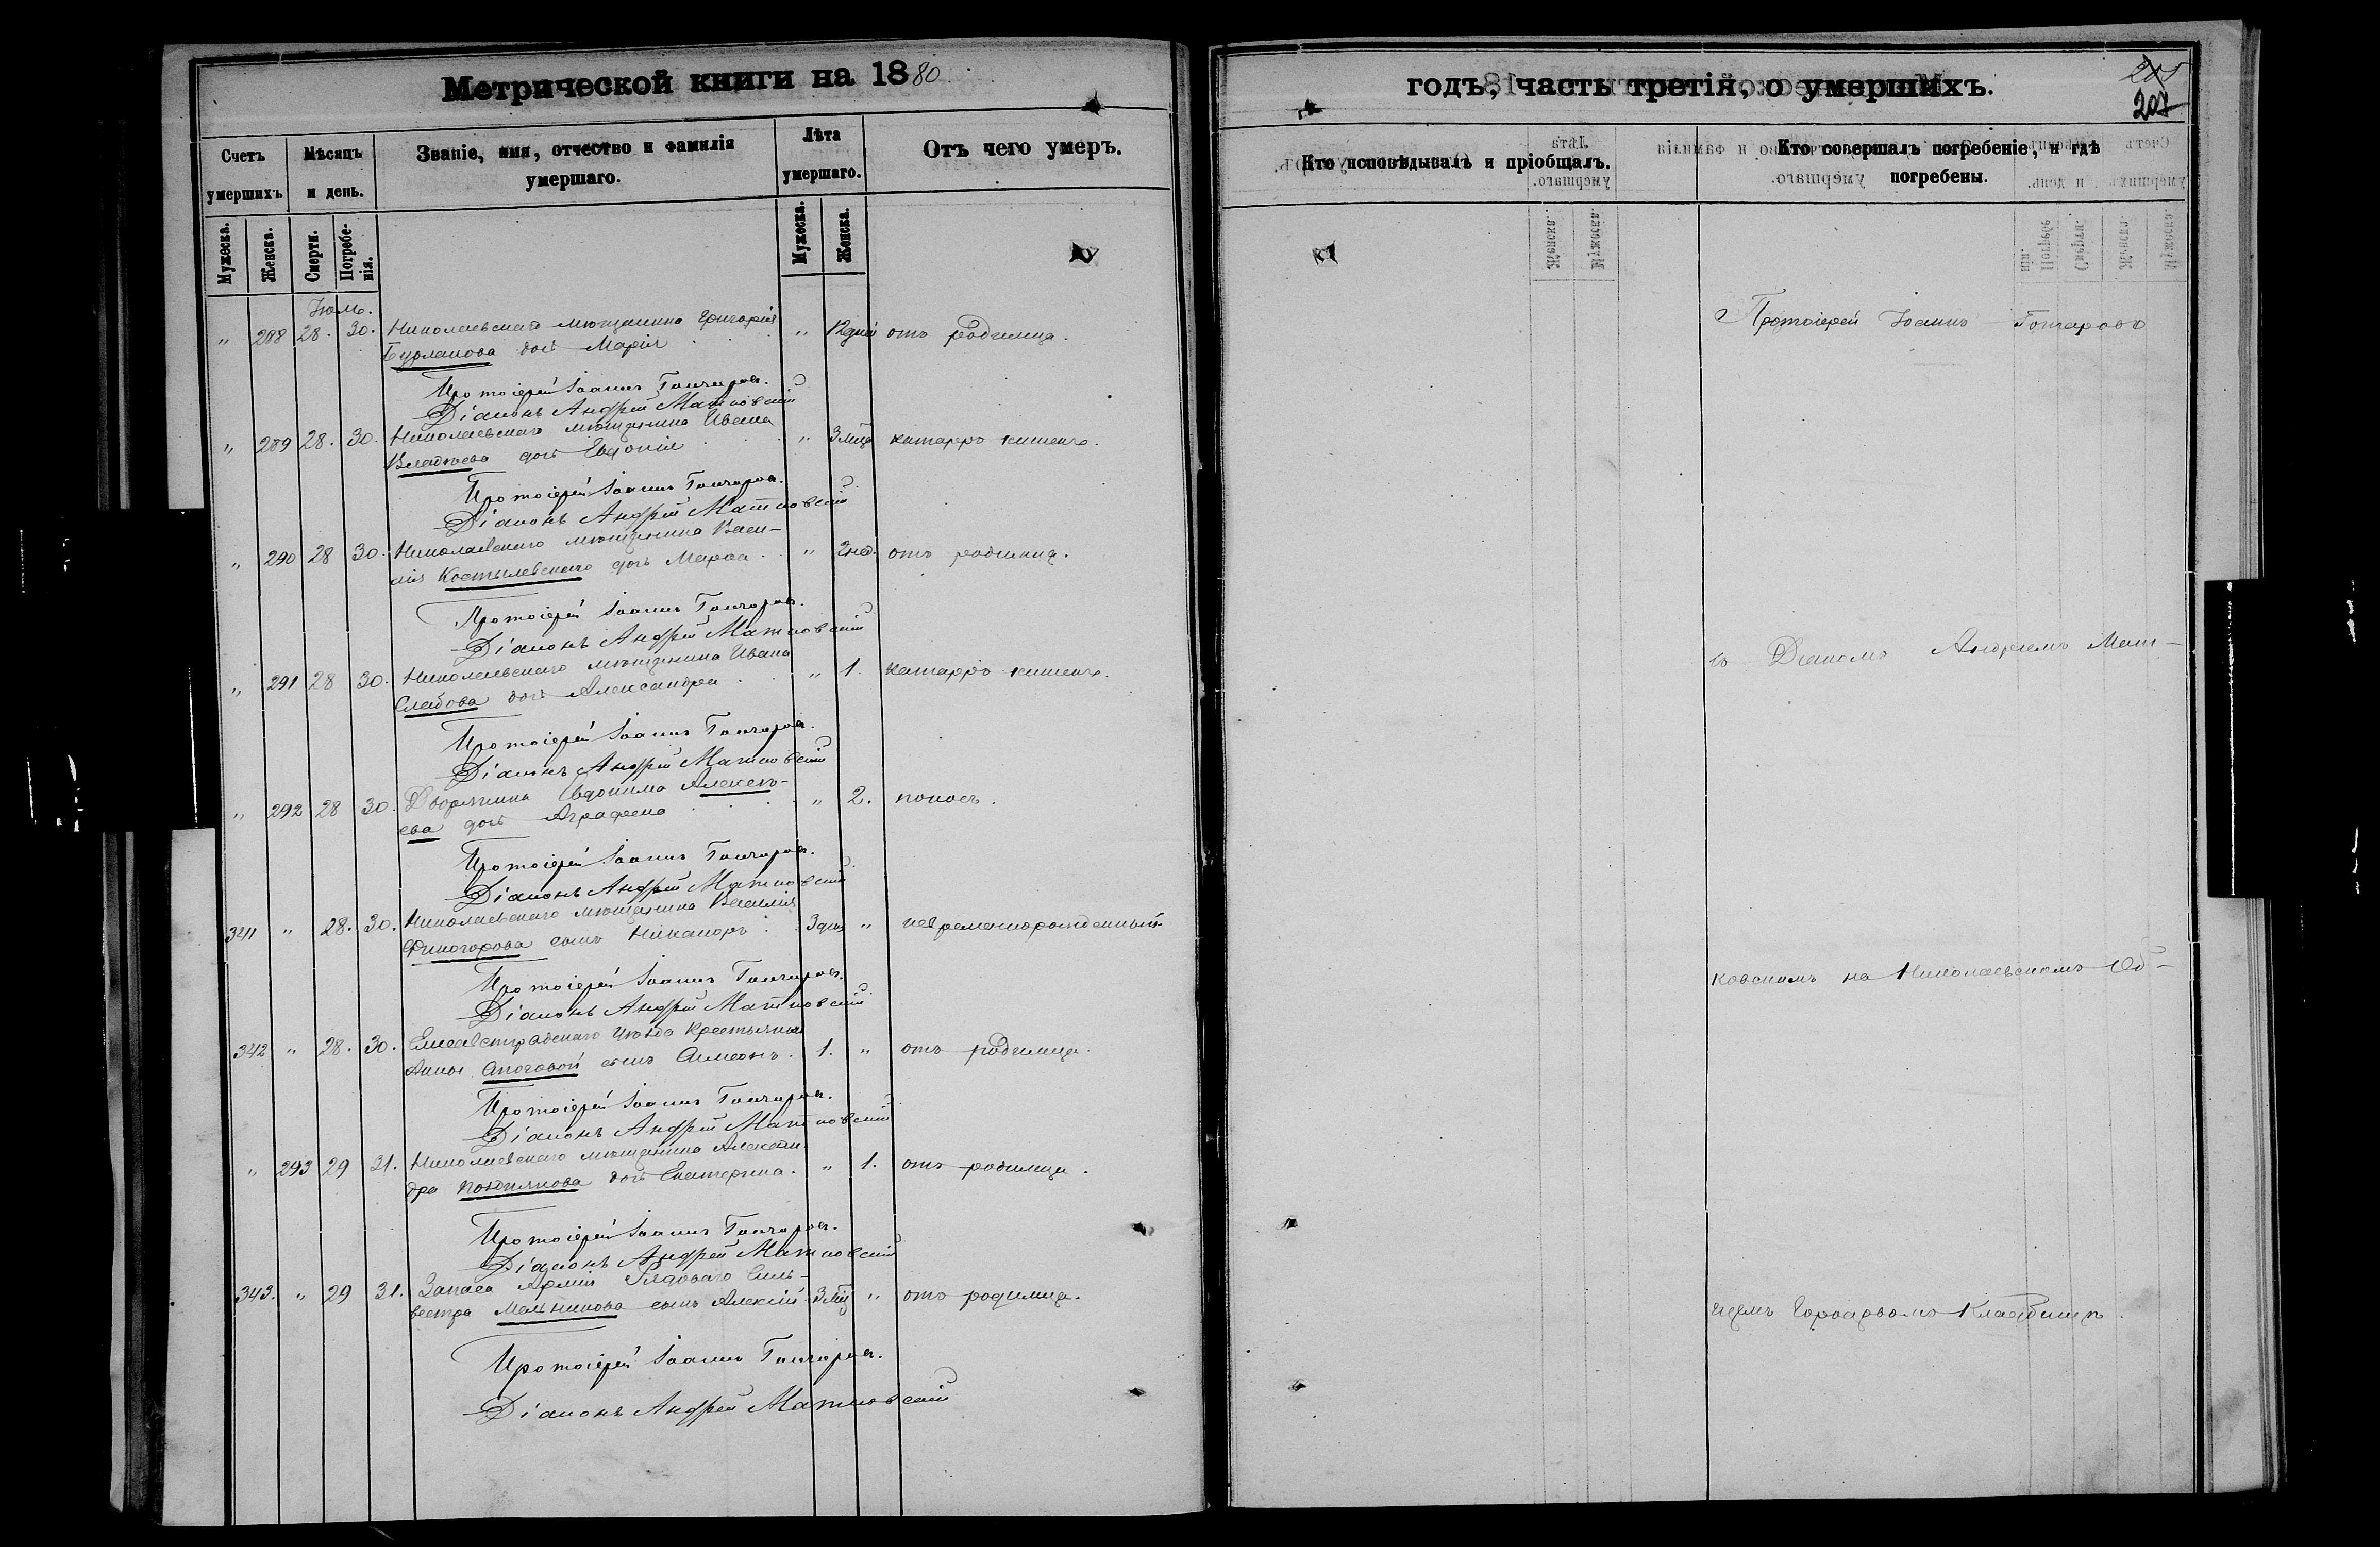 Метрической книги на 1880.
Счетъ умершихъ
Мѣсяцъ и день.
Званіе, имя, отчество и фамилія умершаго.
Лѣта умершаго.
Отъ чего умеръ.
Мужеска.
Женска.
Смерти.
Погребенія.
Мужеска.
Женска.
Іюль.
" 288 28. 30. Николаевскаго мѣщанина Григорія " 12 дней отъ родимца.
Бурлакова дочь Марія
Протоіерей Іоаннъ Гончаровъ.
Діаконъ Андрей Матковскій
" 289 28. 30. Николаевскаго мѣщанина Ивана " 3 мѣц катарръ кишекъ.
дочь Евдокія
Протоіерей Іоаннъ Гончаровъ.
Діаконъ Андрей Матковскій
" 290 28 30. Николаевскаго мѣщанина Васи-
" 2 нед. отъ родимца.
лія Костылевскаго дочь Марѳа
Протоіерей Іоаннъ Гончаровъ.
Діаконъ Андрей Матковскій
" 291 28 30. Николаевскаго мѣщанина Ивана " 1. катарръ кишекъ.
Слабова дочь Александра
Протоіерей Іоаннъ Гончаровъ.
Діаконъ Андрей Матковскій
" 292 28 30. Дворянина Евдокима Алексѣ- " 2. поносъ.
ева дочь Аграфена
Протоіерей Іоаннъ Гончаровъ.
Діаконъ Андрей Матковскій
341 " 28. 30. Николаевскаго мѣщанина Василія
Финогорова сынъ Никаноръ 3 дня " невременнорожденный
Протоіерей Іоаннъ Гончаровъ.
Діаконъ Андрей Матковскій
342 " 28. 30. Елисаветградскаго уѣзда крестьянки
Анны сынъ Симеонъ. 1. " отъ родимца.
Протоіерей Іоаннъ Гончаровъ.
Діаконъ Андрей Матковскій
" 293 29 31. Николаевскаго мѣщанина Алексан-
дра дочь Екатерина. " 1. отъ родимца.
Протоіерей Іоаннъ Гончаровъ.
Діаконъ Андрей Матковскій
343. " 29 31. Запаса Арміи Рядоваго Силь-
вестра Мельникова сынъ Алексій 3 мц " отъ родимца.
Протоіерей Іоаннъ Гончаровъ.
Діаконъ Андрей Матковскій
годъ, часть третія, о умершихъ.
207
Кто исповѣдывалъ и пріобщалъ.
Кто совершалъ погребеніе, и гдѣ погребены.
Протоіерей Іоаннъ Гончаровъ
съ Діаконъ Андреемъ Мат-
ковскимъ на Николаевскомъ Об-
щемъ Городскомъ Кладбищѣ.